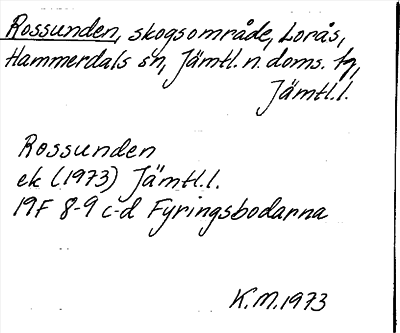 Rossunden, skogsområde, Lorås,
Hammerdals sn, Jämtl. n. doms. tg,
Jämtl.l.
Rossunden
ek (1973) Jämtl.l.
19F 8-9 c-d Fyringsbodarna
K.M.1973